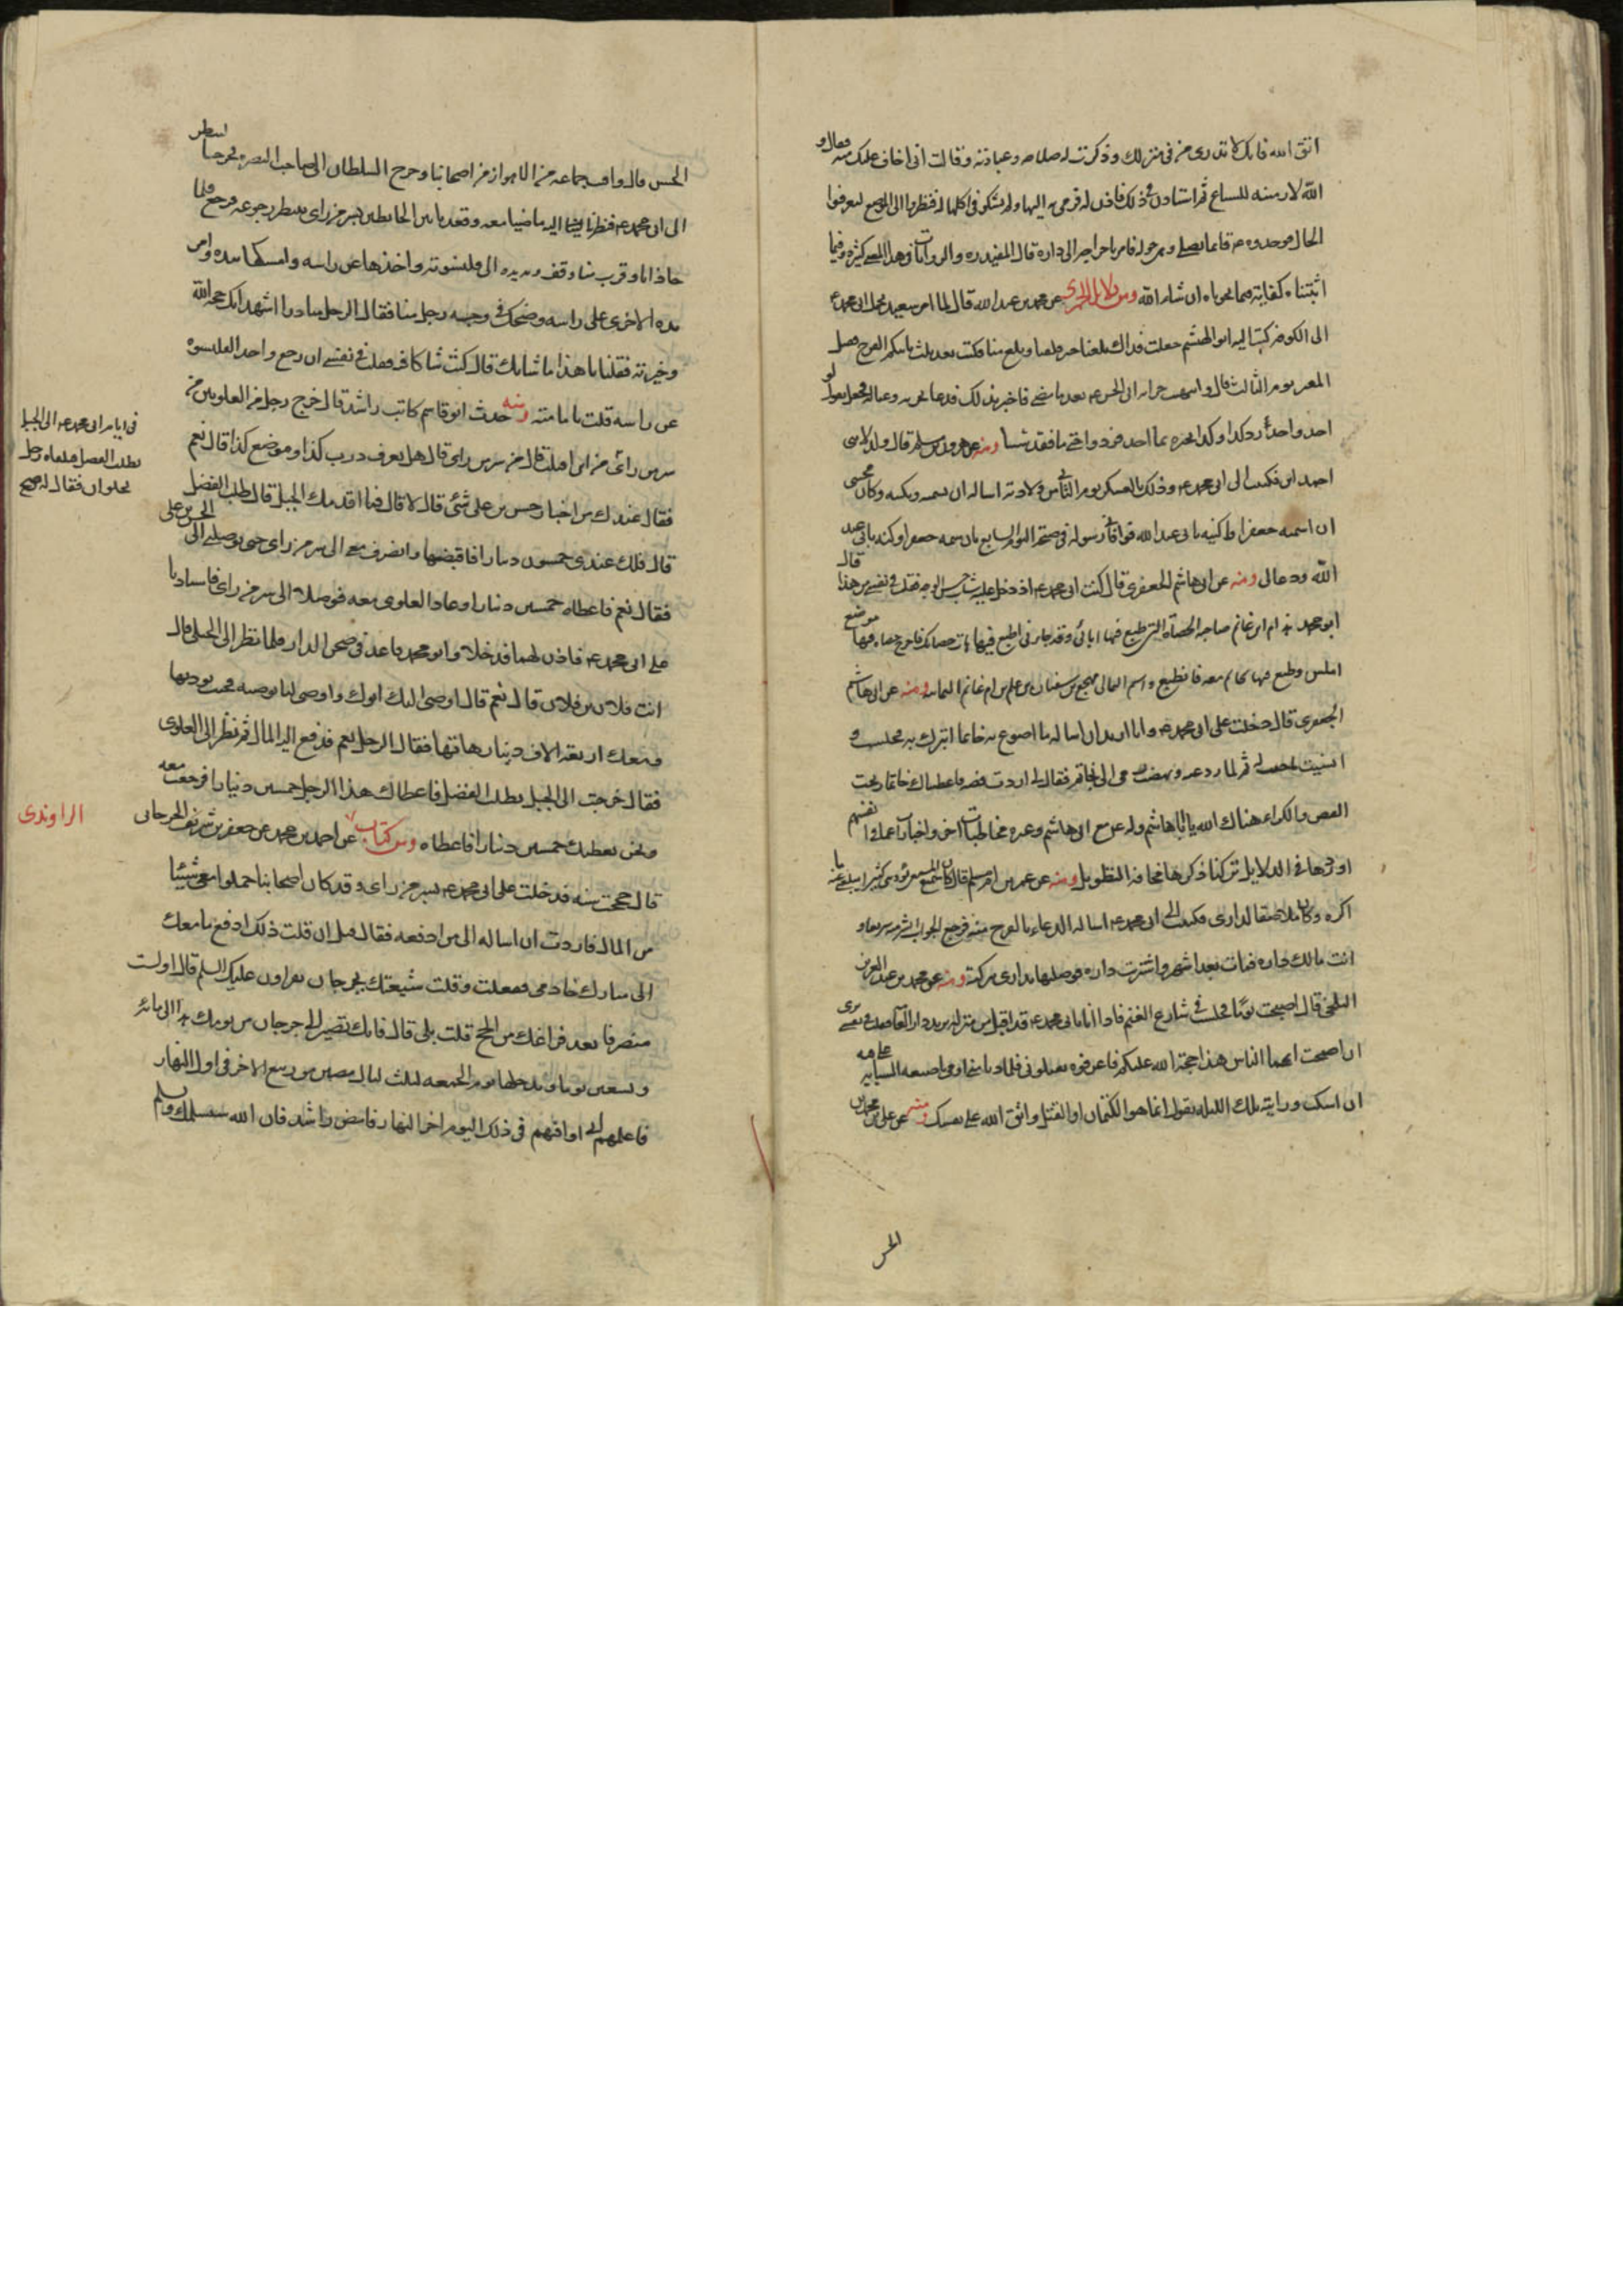 اتق الله فانك لا تدرى من فى منزلك وذكرت له صلاحه وعبادته وقالت انى اخاف عليك منه فقال و
الله لارمينه للسباع ثم استاذن فى ذلك فاذن له فرمى به اليها ولم يشكو فى اكلها له فنظروا الى الموضع ليعرفوا
الحال فوجدوه عه قائما يصلى وهى حوله فامر باخراجه الى داره قال المفيد ره والروايات فى هذا المعنى كثيرة وفيما
اثبتناه كفاية فيما نحوناه ان شاء الله ومن دلايل الحميرى عن محمد بن عبد الله قال لما امر سعيد بحمل ابى محمد عه
الى الكوفه كتب اليه ابو الهيثم جعلت فداك بلغنا خبر قلقنا وبلغ منا فكتب بعد ثلث ياتيكم الفرج فقتل
المعتز يوم الثالث قال
احد واحدا رد كذا وكذا
احمد ابن فكتب الى ابى محمد عه وذلك بالعسكر يوم الثانى من ولادته اساله ان يسميه ويكنيه وكان محبتى
ان اسميه جعفرا واكنيه بابى عبد الله فوافانى رسوله فى صبيحة اليوم السابع بان سمه جعفرا وكنه بابى عبد
الله ودعا لى ومنه عن ابى هاشم الجعفرى قال كنت عند ابى محمد عه اذ دخل عليه شاب حسن الوجه فقلت فى نفسى من هذا قال
ابو محمد هذا ابن ام غانم صاحبة الحصاة التى طبع فيها ابائى وقد جاءنى اطبع فيها هات حصاتك فاخرج حصاة فيها موضع
املس وطبع فيها بخاتم معه فانطبع واسم اليمانى مهجع بن سفيان بن علم بن ام غانم اليمانيه ومنه عن ابى هاشم
الجعفرى قال دخلت على ابى محمد عه وانا اريد ان اساله ما اصوغ به خاتما اتبرك به فجلست و
انسيت ما جئت له فلما ودعته ونهضت رمى الى بخاتم فقال اردت فضه فاعطيناك خاتما ربحت
الفص والكراء هناك الله يا ابا هاشم
اوردها فى الدلايل تركنا ذكرها مخافة التطويل ومنه عن عمر بن ابى مسلم قال كان سميع المسمعى يؤذينى كثيرا ويبلغنى عنه ما
اكره وكان ملاصقا لدارى فكتبت الى ابى محمد عه اساله الدعاء بالفرج منه فرجع الجواب ابشر
انت مالك داره فمات بعد اشهر واشتريت داره فوصلتها بدارى ببركته ومنه عن محمد بن عبد العزيز
البلخى قال اصبحت يوما فجلست فى شارع الغنم فاذا انا بابى محمد عه قد اقبل من منزله يريد دار العامه فقلت فى نفسى ترى
ان صحت ايها الناس هذا حجة الله عليكم فاعرفوه يقتلونى فلما دنا منى اومى باصبعه السبابه على فيه
ان اسكت ورايته تلك الليله يقول انما هو الكتمان او القتل واتق الله على نفسك ومنه عن على بن محمد بن
الحسن
الحسن قال وافت جماعه من الاهواز من اصحابنا وخرج السلطان الى صاحب البصره فخرجنا لننظر
الى ابى محمد عه فنظرنا اليه ماضيا معه وقعدنا بين الحائطين بسر من راى ننتظر رجوعه فرجع فلما
حاذانا وقرب منا وقف ومد يده الى قلنسوته واخذها عن راسه وامسكها بيده وامر
يده الاخرى على راسه وضحك فى وجه رجل منا فقال الرجل مبادرا اشهد انك حجة الله
وخيرته فقلنا يا هذا ما شانك قال كنت شاكا فيه فقلت فى نفسى ان رجع واخذ القلنسوه
عن راسه قلت بامامته ومنه حدث ابو قاسم كاتب راشد قال خرج رجل من العلويين من
سر من راى
فى ايام ابى محمد عه الى الجبل
يطلب الفضل فلقاه رجل
بحلوان فقال له
من اين اقبلت قال من سر من راى قال هل تعرف درب كذا وموضع كذا قال نعم
فقال عندك من اخبار حسن بن على شئ قال لا قال فما اقدمك الجبل قال طلب الفضل
قال فلك عندى خمسون دينارا فاقبضها وانصرف معى الى سر من راى حتى توصلنى الى الحسن بن على
فقال نعم فاعطاه خمسين دينارا وعاد العلوى معه فوصلا الى سر من راى فاستاذنا
على ابى محمد عه فاذن لهما فدخلا وابو محمد قاعد فى صحن الدار فلما نظر الى الجبلى قال
انت فلان بن فلان قال نعم قال اوصى اليك ابوك واوصى لنا بوصيه فجئت تؤديها
ومعك اربعة الاف دينار هاتها فقال الرجل نعم فدفع اليه المال ثم نظر الى العلوى
فقال خرجت الى الجبل تطلب الفضل فاعطاك هذا الرجل خمسين دينارا فرجعت معه
ونحن نعطيك خمسين دينارا فاعطاه ومن كتاب عن احمد بن محمد عن جعفر بن شريف الجرجانى
الراوندى
قال حججت سنه فدخلت على ابى محمد عه بسر من راى وقد كان اصحابنا حملوا معى شيئا
من المال فاردت ان اساله الى من ادفعه فقال قبل ان قلت ذلك ادفع ما معك
الى مبارك خادمى ففعلت وقلت شيعتك بجرجان يقراون عليك السلم قال اولست
منصرفا بعد فراغك من الحج قلت بلى قال فانك تصير الى جرجان من يومك هذا الى مائة
وتسعين يوما وتدخلها يوم الجمعه لثلث ليال مضين من ربيع الاخر فى اول النهار
فاعلمهم انى اوافيهم فى ذلك اليوم اخر النهار فامض راشدا فان الله سيسلمك ويسلم